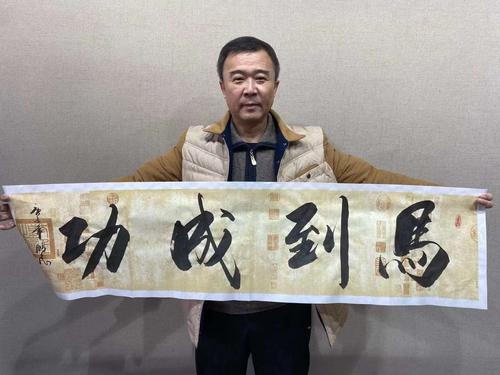 馬到成功